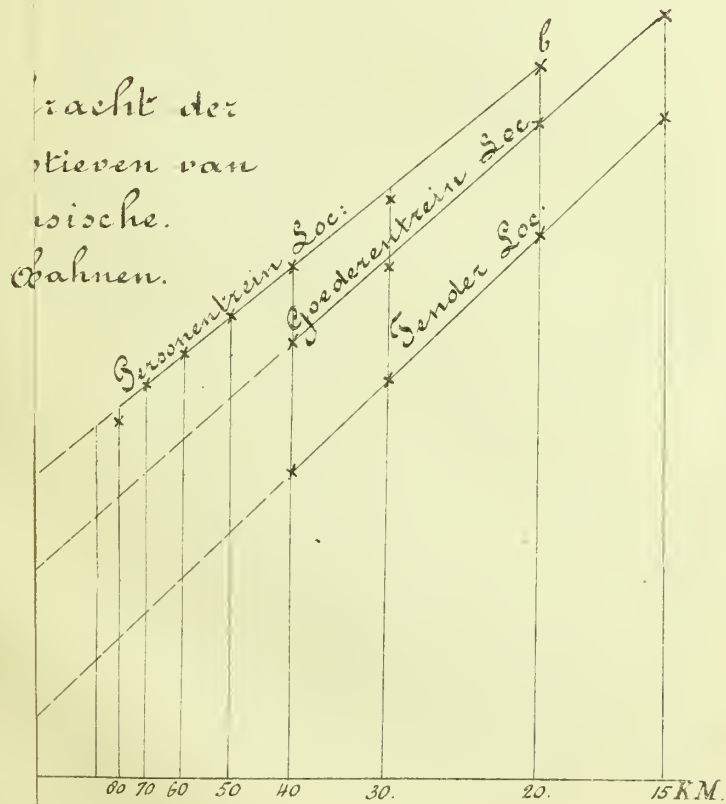 racht der
tieven van
sische.
Bahnen.
b
Personentrein Loc:
Goederentrein Loc.
Tender Loc:
80 70 60 50 40 30. 20. 15 KM.